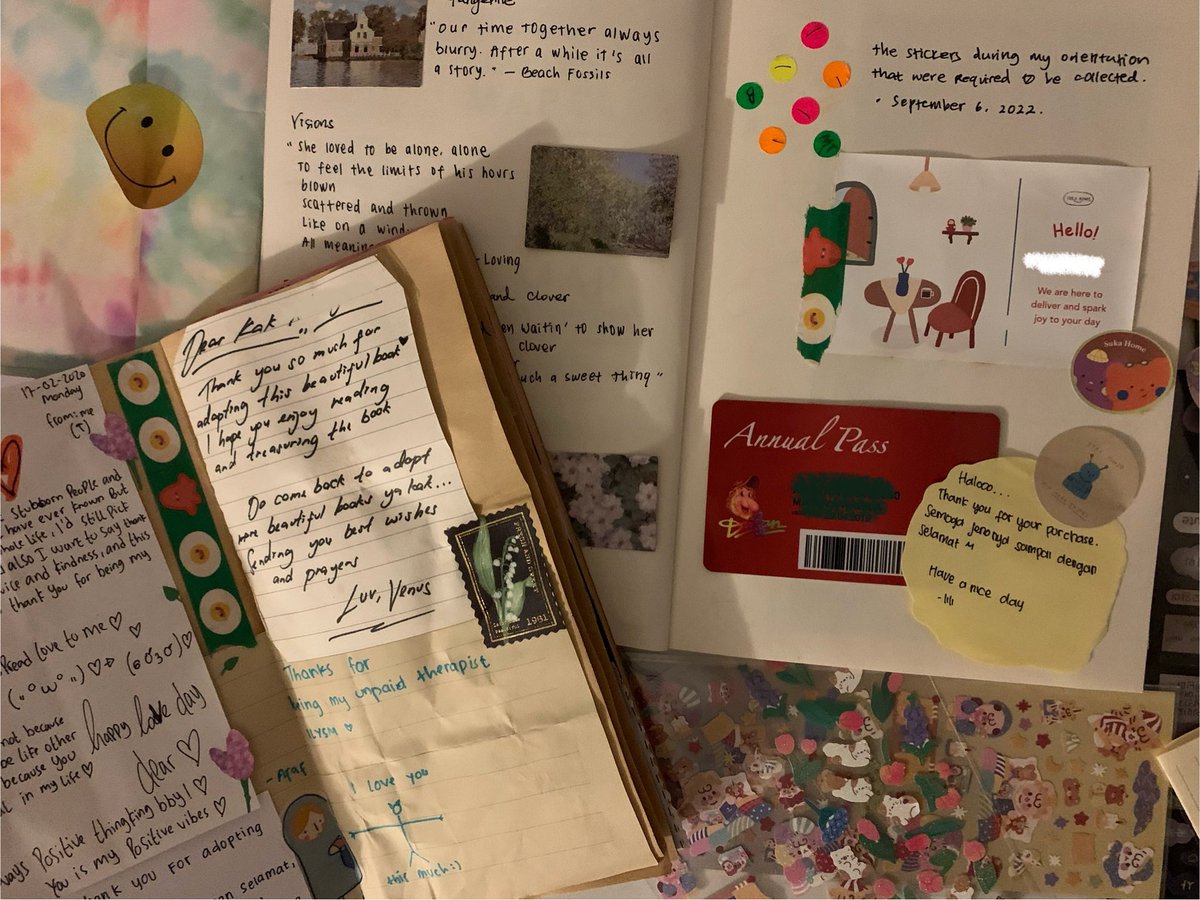 Tangerine
"Our time together always
blurry. After a while it's all
a story." — Beach Fossils
Visions
"She loved to be alone, alone
To feel the limits of his hours
blown
scattered and thrown
Like on a wind.
All meaning
- Loving
and clover
waitin' to show her
clover
such a sweet thing"
the stickers during my orientation
that were required to be collected.
• September 6, 2022.
Hello!
We are here to
deliver and spark
joy to your day
Suka Home
Annual Pass
Haloco...
Thank you for your purchase.
Semoga jenonya sampai dengan
selamat
Have a nice day
-lili
Dear Kak
Thank you so much for
adopting this beautiful book♥
I hope you enjoy reading
and treasuring the book
Do come back to adopt
more beautiful books ya kak...
sending you best wishes
and prayers
Luv, Venus
1981
Thanks for
being my unpaid therapist
ILYSM ♥
- Araf
I love you
this much:)
17-02-2020
Monday
from: me
(T)
stubborn people and
have ever known But
whole life, i'd still pick
also I want to say thank
and kindness, and this
thank you for being my
Read love to me♡
not because
be like other
because you
in my life♡
happy love day
dear ♡
always Positive thingking bby! ♡
You is my Positive vibes ♡
thank you for adopting
selamat,